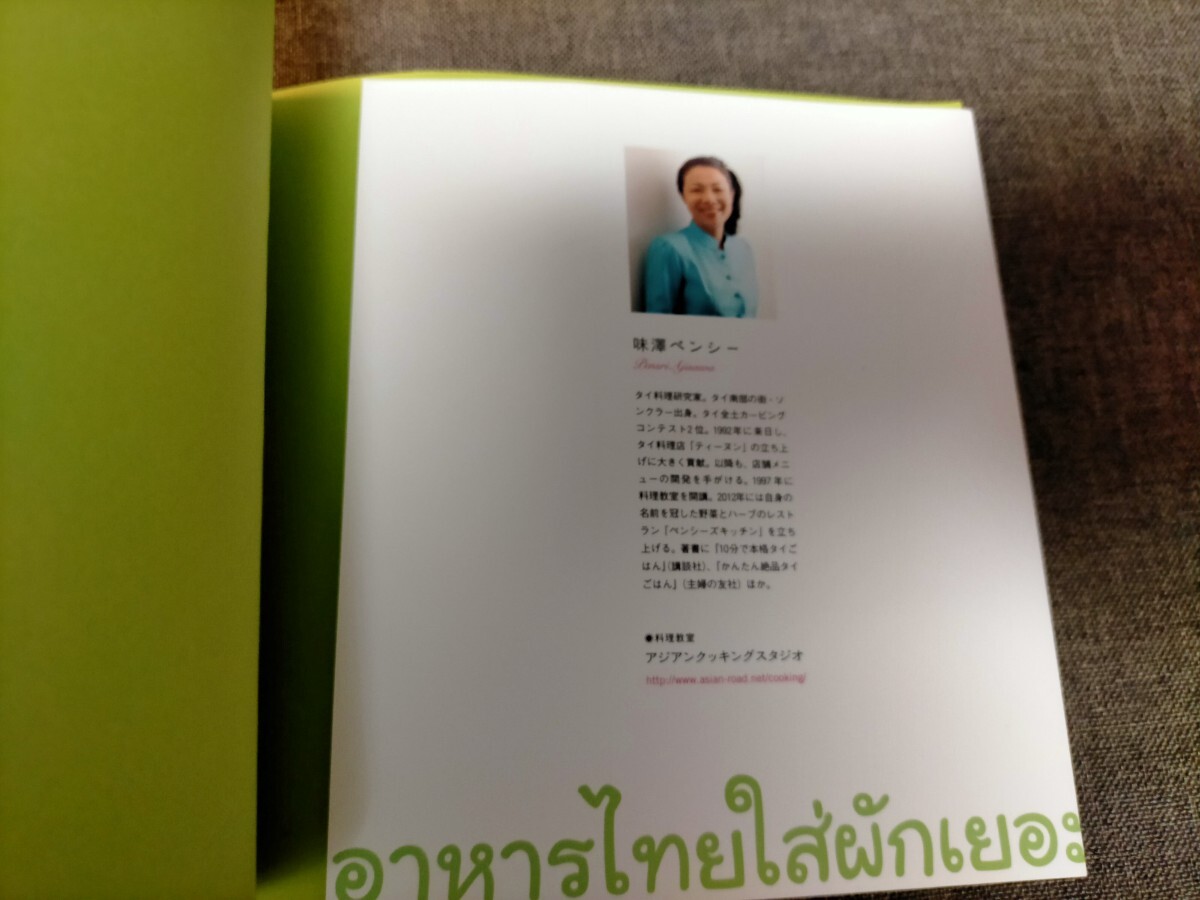 味澤ペンシー
Pensri Ajisawa
タイ料理研究家。タイ南部の街・ソ
ンクラー出身。タイ全土カービング
コンテスト2位。1992年に来日し、
タイ料理店「ティーヌン」の立ち上
げに大きく貢献。以降も、店舗メニ
ューの開発を手がける。1997年に
料理教室を開講。2012年には自身の
名前を冠した野菜とハーブのレスト
ラン「ペンシーズキッチン」を立ち
上げる。著書に『10分で本格タイご
はん』(講談社)、『かんたん絶品タイ
ごはん』(主婦の友社)ほか。
●料理教室
アジアンクッキングスタジオ
http://www.asian-road.net/cooking/
อาหารไทยใส่ผักเยอะ